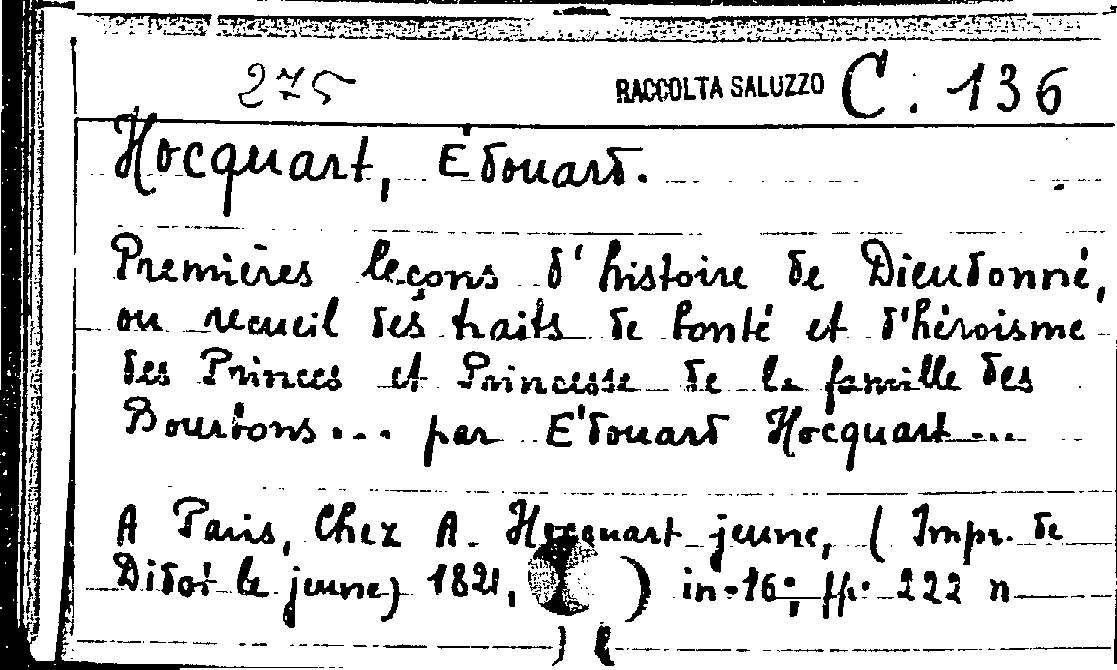 275 RACCOLTA SALUZZO C. 136
Hocquart, Édouard.
Premières leçons d'histoire de Dieudonné,
ou recueil des traits de bonté et d'héroisme
des Princes et Princesse de la famille des
Bourbons... par Édouard Hocquart...
A Paris, Chez A. Hocquart jeune, (Impr. de
Didot le jeune) 1821, ) in-16°; pp. 222 n